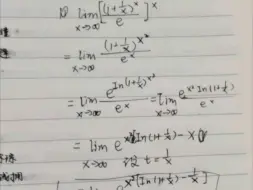 lim x→∞ [(1+1/x)^x / e]^x
= lim x→∞ (1+1/x)^x² / e^x
= lim x→∞ e^ln(1+1/x)^x² / e^x = lim x→∞ e^x² ln(1+1/x) / e^x
= lim x→∞ e^x[ln(1+1/x) - x
设 t = 1/x
e^x²[ln(1+1/x) - 1/x]